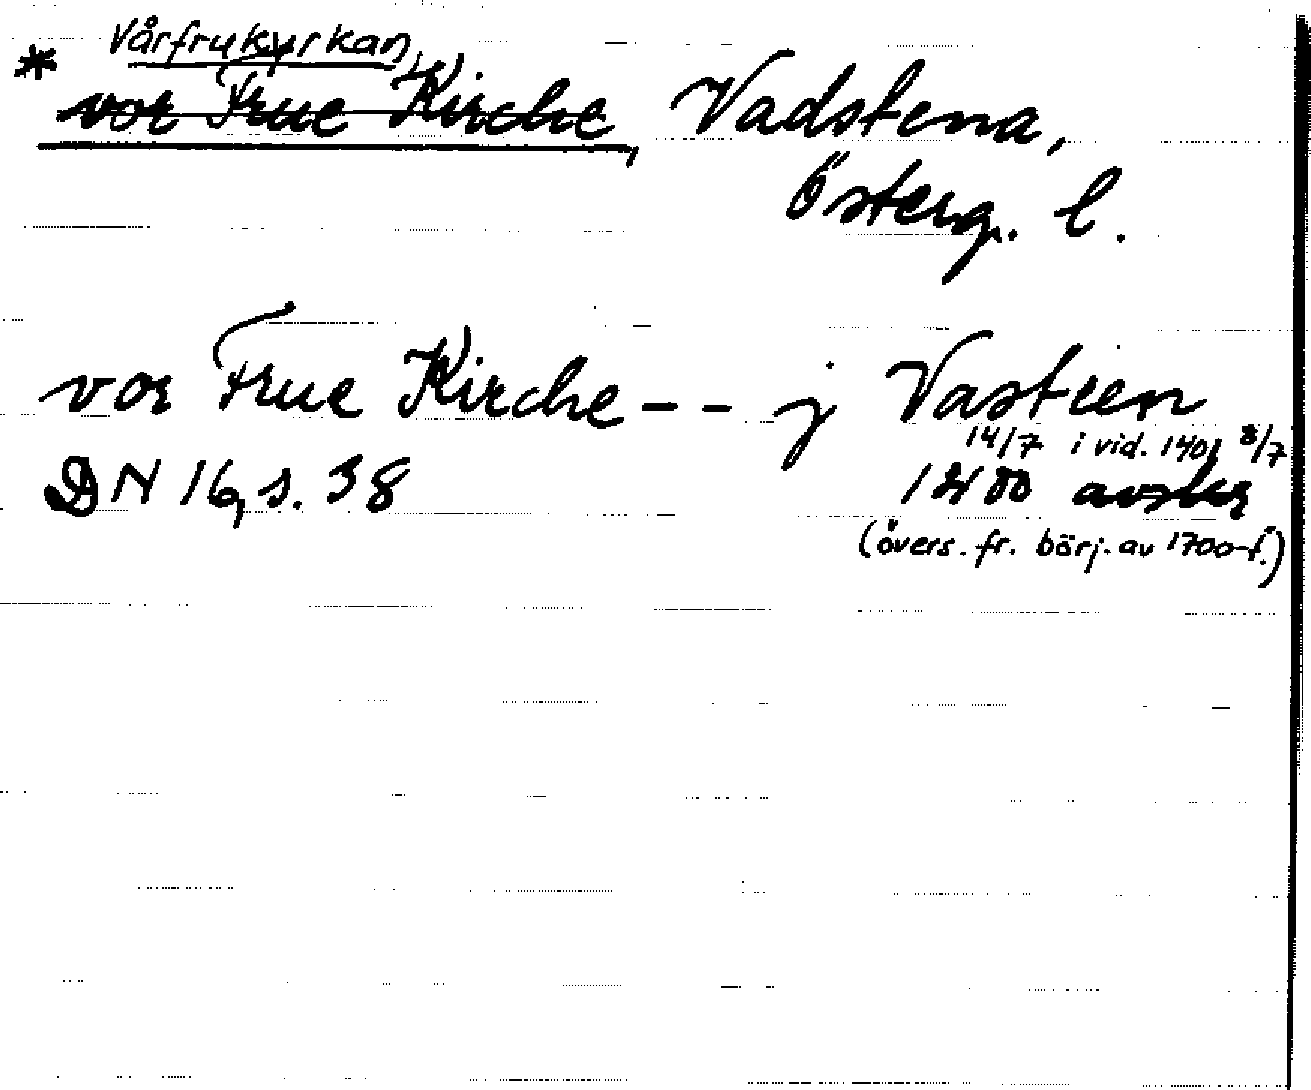 Vårfrukyrkan,
* vor Frue Kirche, Vadstena,
Österg. l.
vor Frue Kirche -- j Vastien
14/7 i vid. 1401 8/7
DN 16, s. 38 1400 avskr
(övers. fr. börj. av 1700-t.)